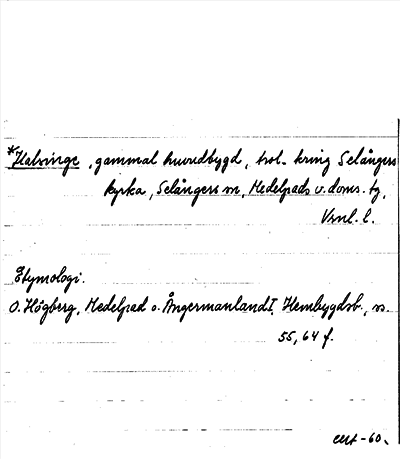 *Kalvinge, gammal huvudbygd, trol. kring Selångers
kyrka, Selångers sn, Medelpads v. doms. tg,
Vrnl. l.
Etymologi.
O. Högberg, Medelpad o. Ångermanland I, Hembygdsb., ss.
55, 64 f.
-60.